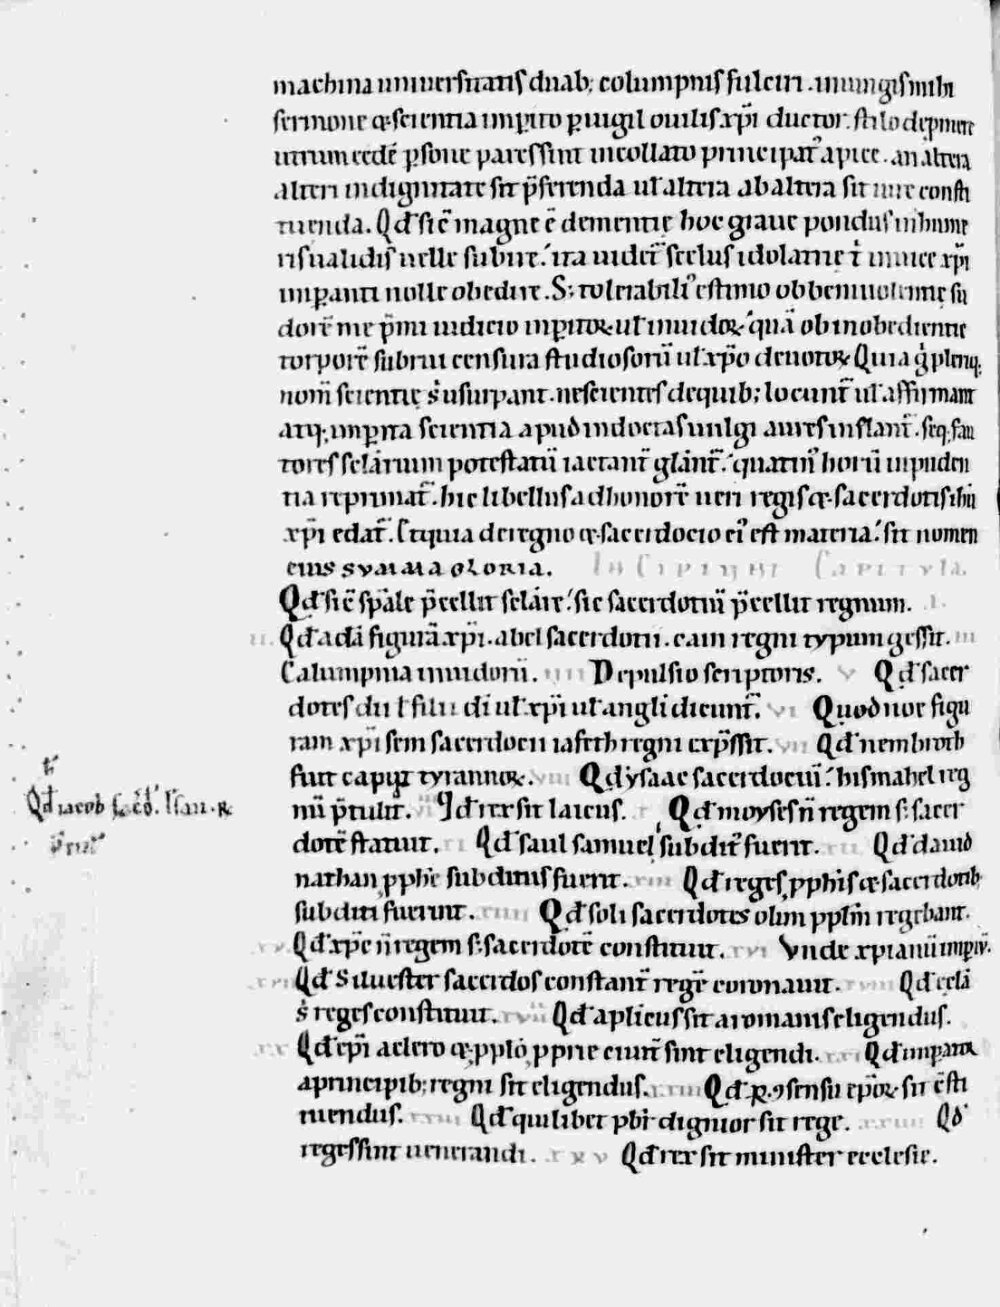 machina universitatis duab; columpnis fulciri. iniungis mihi
sermone & scientia imp̄ito p̄uigil ouilis xp̄i ductor. stilo dep̄mere
utrum eedē p̄sone parēs sint in collato principat᷒ apice. an altera
alteri in dignitate sit p̄ferenda ut̄ altera ab altera sit iure consti
tuenda. Qđ sic̄ magne ē dementię hoc graue pondus in hume
ris ualidis uelle subire. ita uidet᷒ scelus idolatrie ī uice xp̄i
imp̄anti nolle obedire. S; tolerabili᷒ estimo ob beniuolentię su
dorē me p̄mi iudicio inp̄itoꝝ ut̄ inuidoꝝ quā ob inobedientie
torporē subrui censura studiosorū ut̄ xp̄o deuotoꝝ Quia g̊ pleriq;
nom̄ scientię s̊ usurpant. nescientes de quib; locunt᷒ ut̄ affirmant
atq; imp̄ita scientia apud indoctas uulgi aures inflant᷒. seq; fau
tores sclārium potestatū iactant᷒ gl̄ant᷒. quatin᷒ horū inpuden
tia reprimat᷒. hic libellus ad honorē ueri regis & sacerdotis ihū
xp̄i edat᷒. Et quia de regno & sacerdocio ei᷒ est materia. sit nomen
eius SVMMA GLORIA. INCIPIUNT CAPITVLA.
Qđ sic̄ sp̄ale p̄cellit sclāre. sic sacerdotiū p̄cellit regnum. .I.
.II. Qđ adā figurā xp̄i. abel sacerdotii. cain regni typum gessit. III
Calumpnia inuidorū. IIII Depulsio scriptoris. V Qđ sacer
dotes dii ł filii di ut̄ xp̄i ut̄ angli dicunt᷒. VI Quod noe figu
ram xp̄i sem sacerdocii iafeth regni exp̄ssit. VII Qđ nembroth
fuit caput tyrannoꝝ. VIII Qđ ysaac sacerdociū. hismahel reg
nū p̄tulit. VIIII Qđ rex sit laicus. X Qđ moyses n̄ regem s; sacer
dotē statuit. XI Qđ saul samueł subdit᷒ fuerit. XII Qđ dauid
nathan p̱phe subditus fuerit. XIII Qđ reges p̱phis & sacerdotib;
subditi fuerunt. XIIII Qđ soli sacerdotes olim pp̄lm regebant.
XV Qđ xp̄c n̄ regem s; sacerdotē constituit. XVI Vnde xp̄ianū imp̄iū.
XVII Qđ Siluester sacerdos constant᷒ regē coronauit. XVIII Qđ eccl̄a
s̊ reges constituit. XVIIII Qđ aplicus sit a romanis eligendus.
XX Qđ ep̄i a clero & pp̄lo p̱prie ciuit᷒ sint eligendi. XXI Qđ imp̄ator
a principib; regni sit eligendus. XXII Qđ p̱ ɔsensū ep̄oꝝ sit ɔ̄sti
tuendus. XXIII Qđ quilibet pb̄r dignior sit rege. XXIIII Qđ
reges sint uenerandi. XXV Qđ rex sit minister ecclesie.
Qđ iacob sacđ.